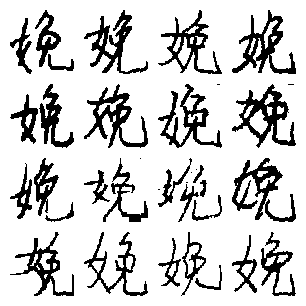 娩娩娩娩
娩娩娩娩
娩娩娩娩
娩娩娩娩